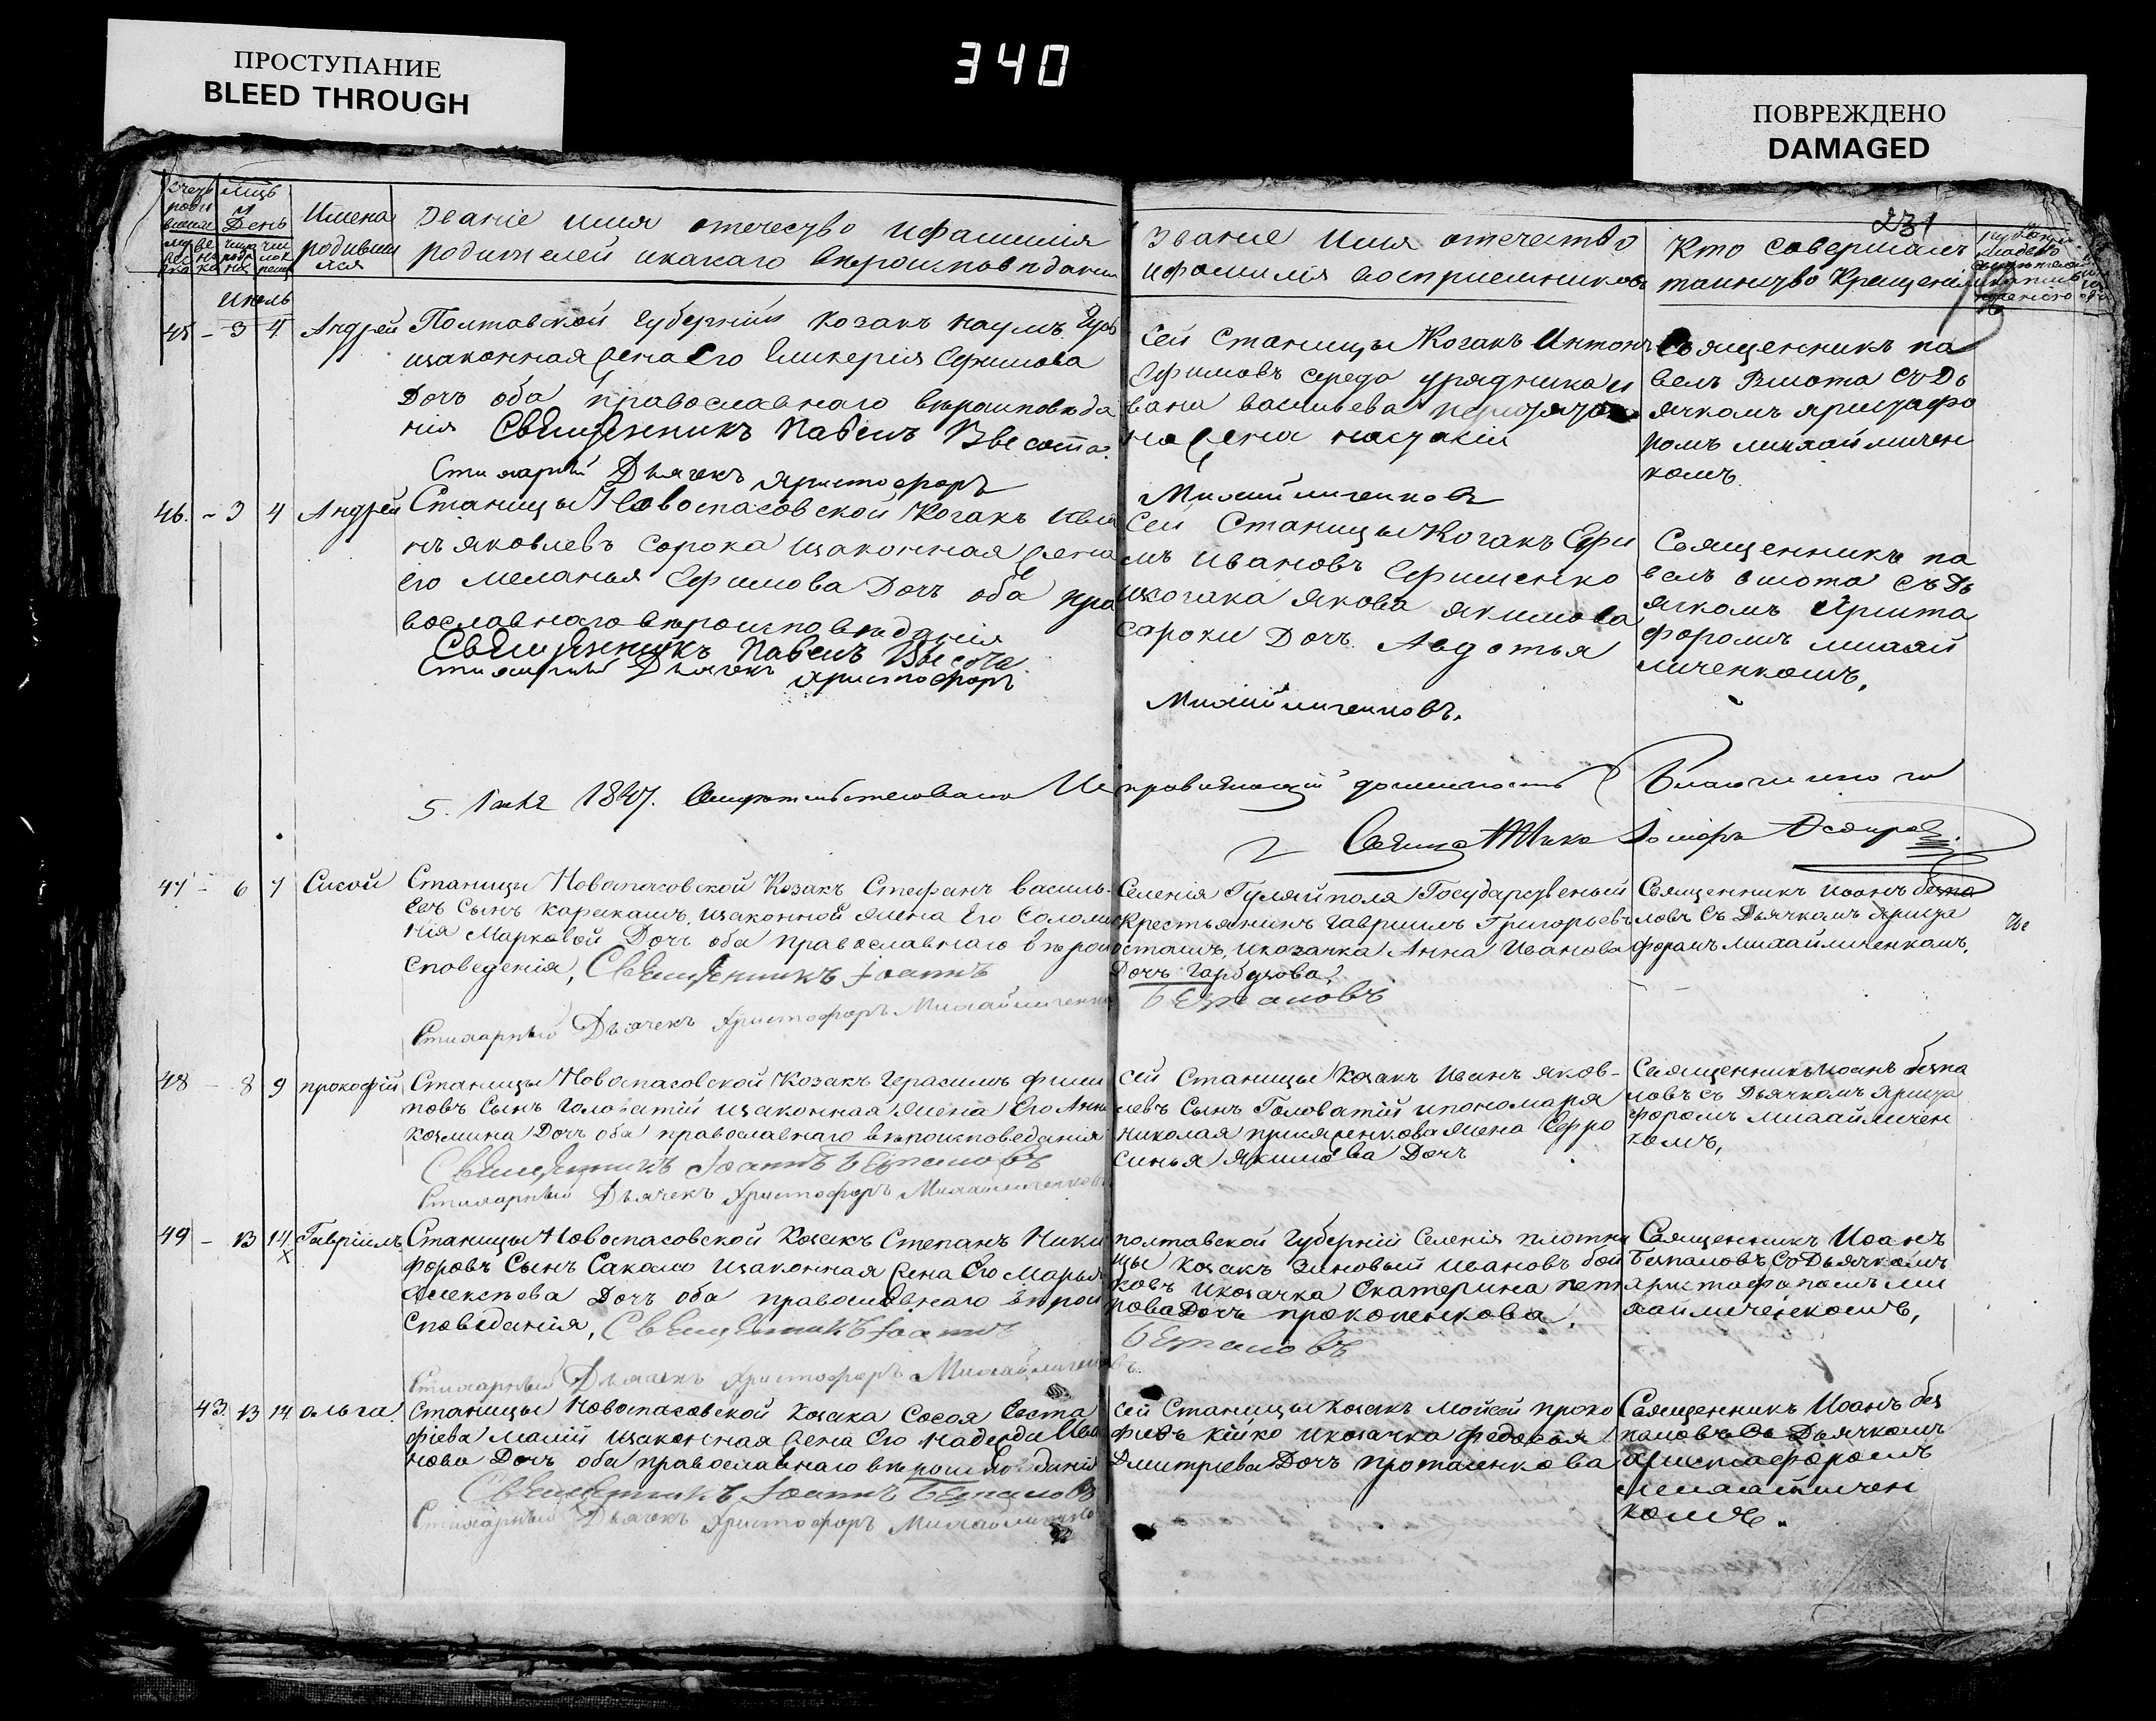 ПРОСТУПАНИЕ
BLEED THROUGH
340
ПОВРЕЖДЕНО
DAMAGED
231
День
Имена
родивши
хся
Званіе имя отечество ифамилія
родителей икакаго вѣроисповѣданія
Званіе Имя отечество
ифамилія восприемниковъ
Кто совершалъ
таинство Крещенія
Июль
45 - 3 4 Андрей
Полтавской Губерніи козакъ Наумъ
изаконная жена Его Гликерія Ефимова
Дочъ оба православнаго вѣроисповѣда
нія Священникъ Павелъ Высота.
Стихарный Дьячекъ Христофоръ
Сей Станицы Козакъ Антонъ
Ефимовъ середа урядника и
вана васильева
жена
Михайличенковъ
Священникъ па
велъ Высота съ Дь
ячкомъ христафо
ромъ михайличен
комъ.
46. - 3 4 Андрей
Станицы Новоспасовской Козакъ Ива
нъ яковлевъ сорока изаконная жена
Его Меланья Ефимова Дочъ оба пра
вославнаго вѣроисповѣданія
Священникъ Павелъ Высота
Стихарный Дьячекъ Христофоръ
Сей Станицы Козакъ Ефи
мъ Ивановъ Ефименко
икозака якова якимова
сароки Дочъ Авдотья
Михайличенковъ.
Священникъ па
велъ высота съ Дь
ячкомъ Христа
форомъ михай
личенкомъ,
5. 1847. Исправляющій должность Благочиннаго
47 - 6 7 Сисой
Станицы Новоспасовской Козакъ Стефанъ василь-
евъ Сынъ изаконной жена Его Соломо
нія Марковой Дочъ оба православнаго вѣрои
споведенія, Священникъ Іоаннъ
Стихарный Дьячекъ Христофоръ Михайличенко
Селенія Гуляйполя Государственый
Крестьянинъ Гавриилъ Григорьевъ
осташъ, икозачка Анна Иванова
Дочъ Гарбузова,
Безпаловъ
Священникъ иоанъ безпа
ловъ съ Дьячкомъ Христа
форомъ михайличенкомъ,
48 - 8 9 прокофій
Станицы Новоспасовской Козакъ Герасимъ Фили
повъ Сынъ Головатій изаконная жена Его Анна
козмина Дочъ оба православнаго вѣроисповеданія
Священникъ Іоаннъ Безпаловъ
Стихарный Дьячекъ Христофоръ Михайличенковъ
Сей Станицы козакъ Иванъ яков-
левъ Сынъ Головатій ипономаря
николая жена Ефро
синья Якимова Дочъ
Священникъ иоанъ безпа
ловъ съ Дьячкомъ Христа
форомъ михайличен
комъ,
49 - 13 14 Гавріилъ
Станицы Новоспасовской Козакъ Степанъ Ники
форовъ Сынъ Сакало изаконная жена Его Марья
Алексѣева Дочъ оба православнаго вѣрои
споведанія, Священникъ Іоаннъ
Стихарный Дьячекъ Христофоръ Михайличенковъ.
полтавской Губерніи Селенія плотни
цы козакъ Зиновый ивановъ бой
ковъ икозачка Екатерина пет
рова Дочъ прокопенкова,
Безпаловъ
Священникъ Иоанъ
Безпаловъ, Со Дьячкомъ
христафоромъ ми
хайличенкомъ,
43. 13 14 ольга.
Станицы Новоспасовской козака Сосоя Евста
фіева малій изаконная жена Его надежда Ива
нова Дочъ оба православнаго вѣроисповѣданія
Священникъ Іоаннъ Безпаловъ
Стихарный Дьячекъ Христофоръ Михайличенко
Сей Станицы козакъ Мойсей проко
фиевъ кійко икозачка федосья
Дмитріева Дочъ проташенкова
Священникъ Иоанъ без
паловъ Съ Дьячкомъ
христафоромъ
михайличен
комъ.